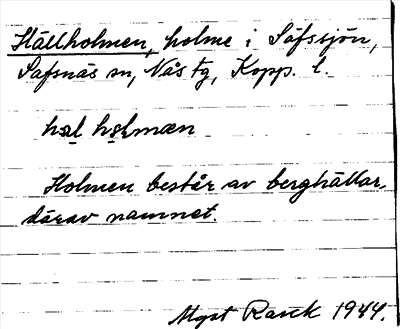 Hällholmen, holme i Säfssjön,
Säfsnäs sn, Nås tg, Kopp. l.
hæl hɷlmæn
Holmen består av berghällar,
därav namnet.
Rasck 1944.